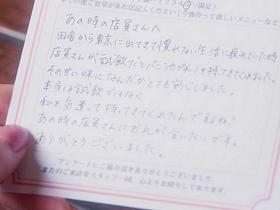 あの時の店員さんへ
田舎から東京に出てきて慣れない生活に疲れていた時
店員さんが「試飲でも」とバニラカプチーノを持ってきてくれました。
その甘い味になんだかとても安心しました。
本当は試飲でもなく
私を気遣って持ってきてくれたんですよね?
あの時の店員さんにお礼が言いたいです。
ありがとうございました。
アンケートにご協力頂きありがとうございました。
またのご来店をスタッフ一同、心よりお待ちしております。